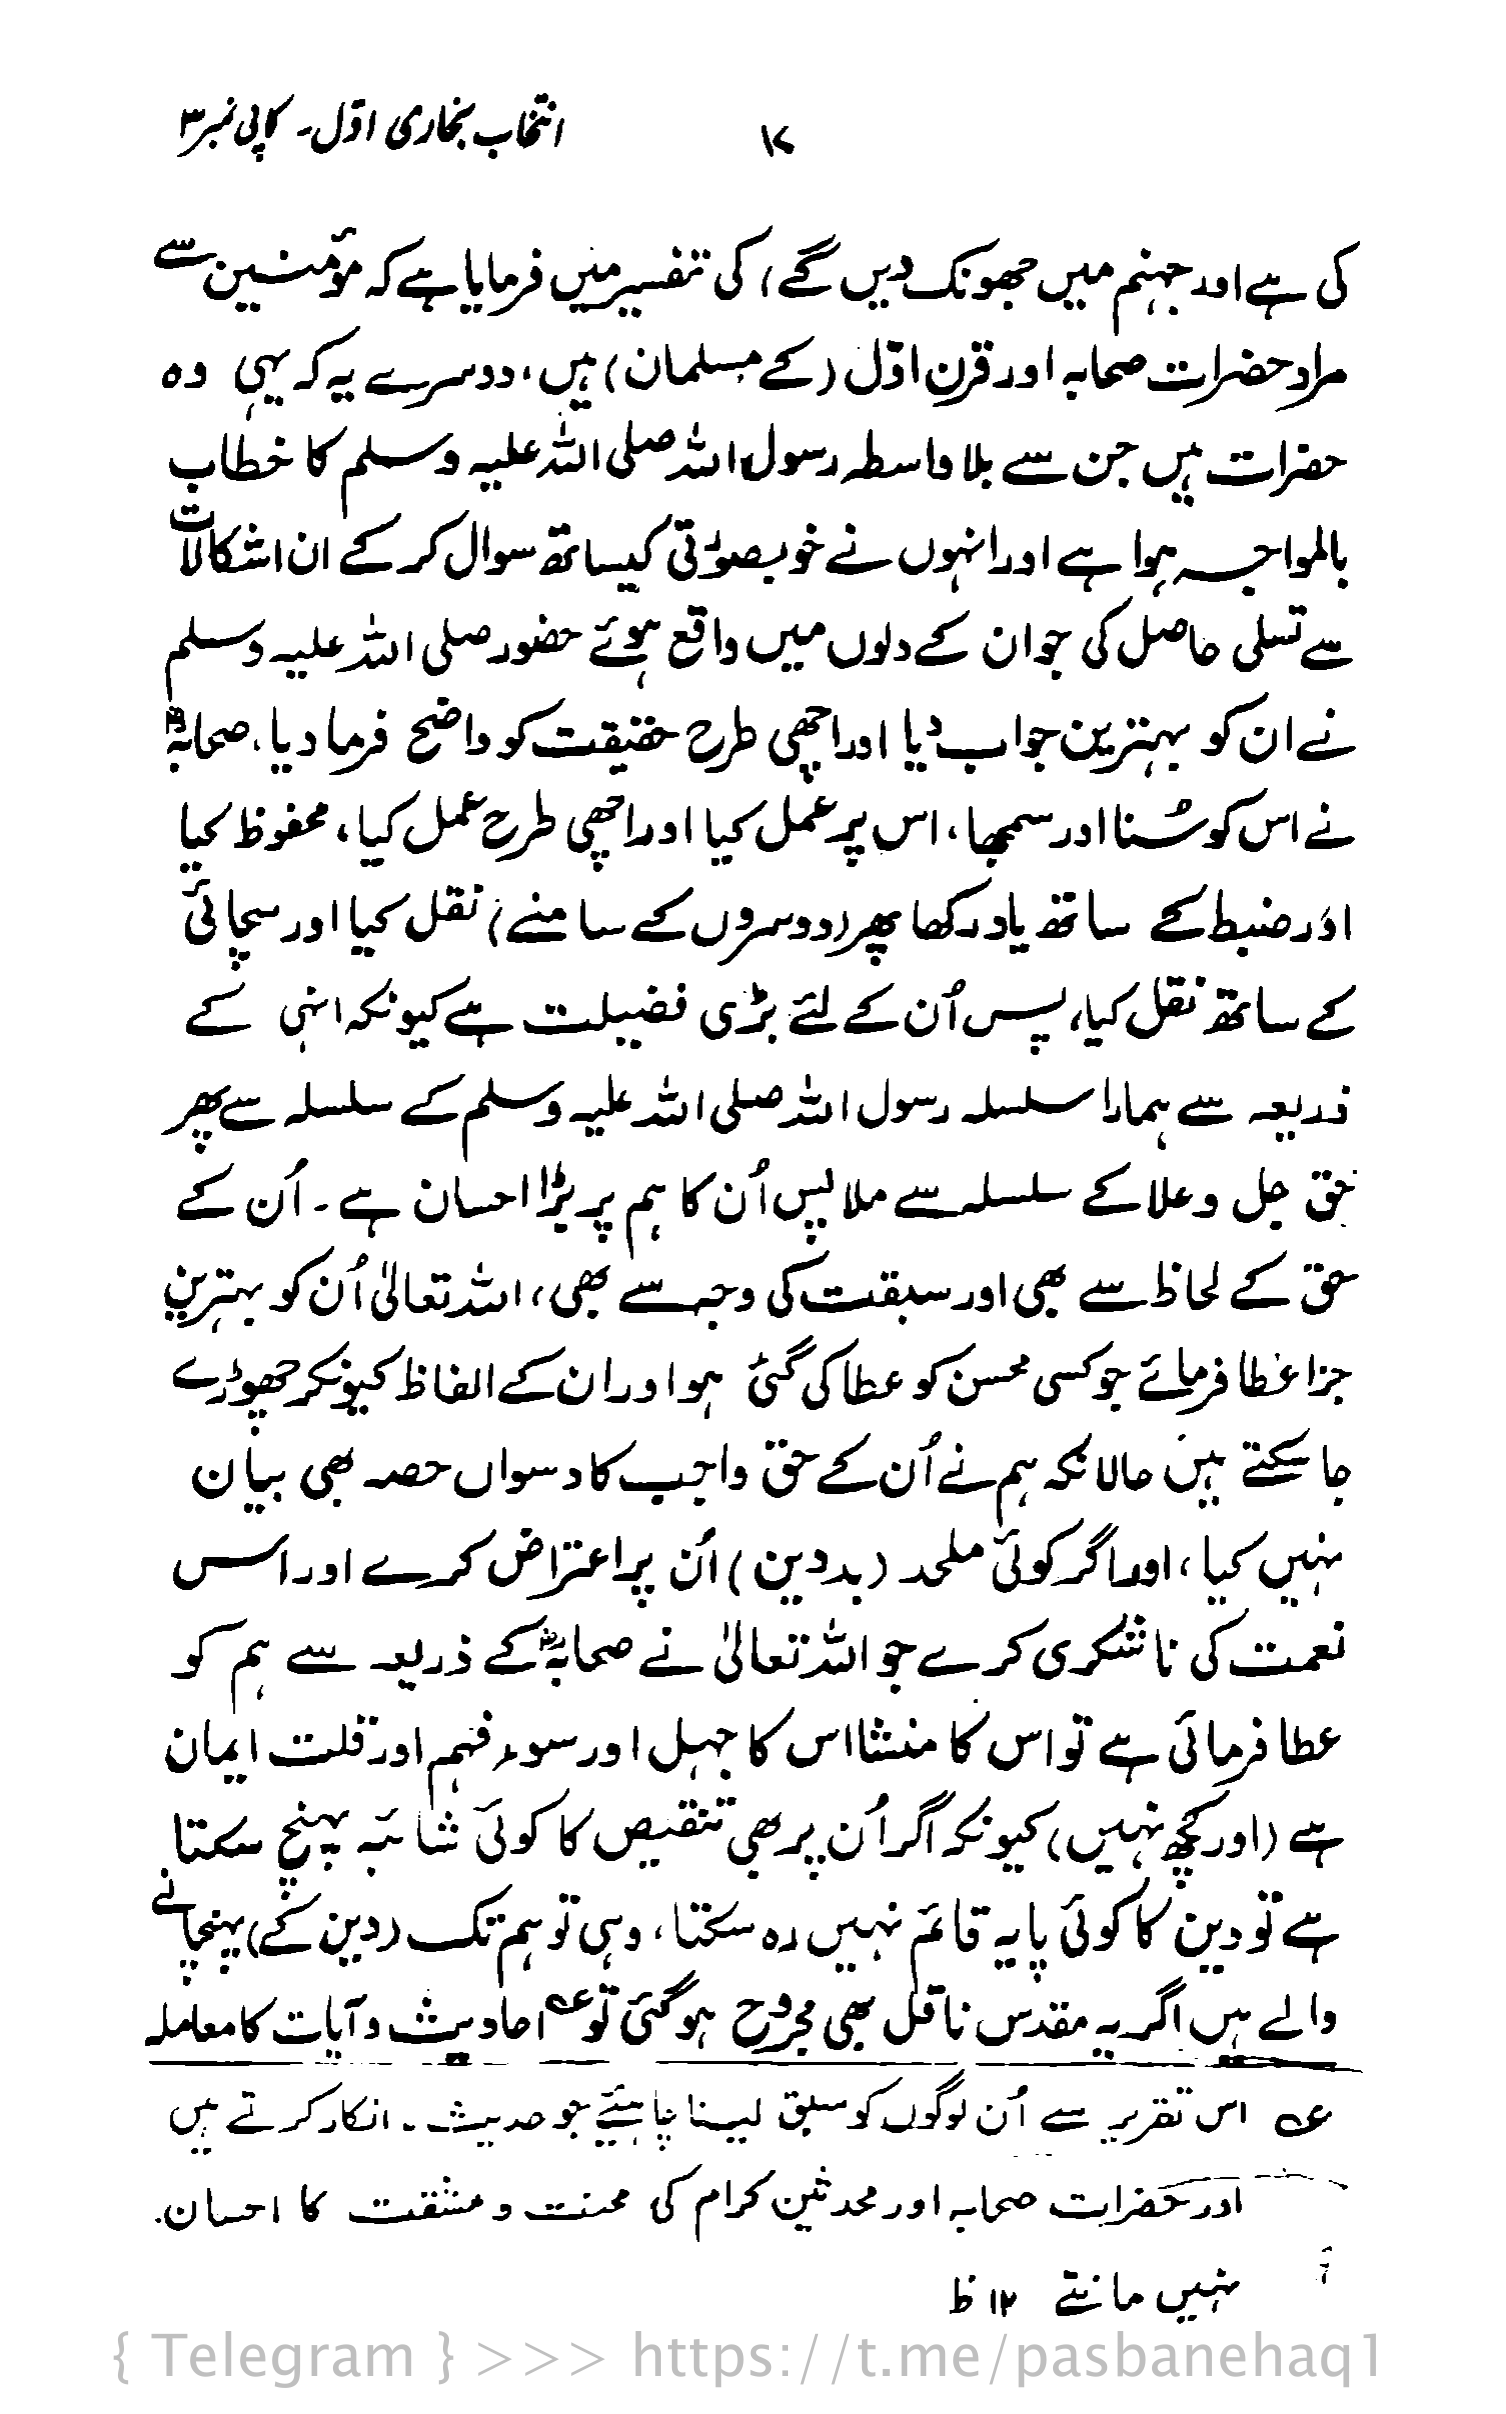 انتخاب بخاری اوّل۔ کاپی نمبر ۳
۱۷
کی ہے اور جہنم میں جھونک دیں گے) کی تفسیر میں فرمایا ہے کہ مؤمنین سے
مراد حضرات صحابہ اور قرن اوّل (کے مسلمان) ہیں، دوسرے یہ کہ یہی وہ
حضرات ہیں جن سے بلا واسطہ رسول اللہ صلی اللہ علیہ وسلم کا خطاب
بالمواجہہ ہوا ہے اور انہوں نے خوبصورتی کیساتھ سوال کر کے ان اشکالات
سے تسلی حاصل کی جو ان کے دلوں میں واقع ہوئے حضور صلی اللہ علیہ وسلم
نے ان کو بہترین جواب دیا اور اچھی طرح حقیقت کو واضح فرما دیا، صحابہؓ
نے اس کو سُنا اور سمجھا، اس پر عمل کیا اور اچھی طرح عمل کیا، محفوظ کیا
اور ضبط کے ساتھ یاد رکھا پھر (دوسروں کے سامنے) نقل کیا اور سچائی
کے ساتھ نقل کیا، پس اُن کے لئے بڑی فضیلت ہے کیونکہ انہی کے
ذریعہ سے ہمارا سلسلہ رسول اللہ صلی اللہ علیہ وسلم کے سلسلہ سے پھر
حق جل وعلا کے سلسلہ سے ملا پس اُن کا ہم پر بڑا احسان ہے۔ اُن کے
حق کے لحاظ سے بھی اور سبقت کی وجہ سے بھی، اللہ تعالیٰ اُن کو بہترین
جزا عطا فرمائے جو کسی محسن کو عطا کی گئی ہو اور ان کے الفاظ کیونکر چھوڑے
جا سکتے ہیں حالانکہ ہم نے اُن کے حق واجب کا دسواں حصہ بھی بیان
نہیں کیا، اور اگر کوئی ملحد (بددین) اُن پر اعتراض کرے اور اس
نعمت کی ناشکری کرے جو اللہ تعالیٰ نے صحابہؓ کے ذریعہ سے ہم کو
عطا فرمائی ہے تو اس کا منشا اس کا جہل اور سوء فہم اور قلت ایمان
ہے (اور کچھ نہیں) کیونکہ اگر اُن پر بھی تنقیص کا کوئی شائبہ پہنچ سکتا
ہے تو دین کا کوئی پایہ قائم نہیں رہ سکتا، وہی تو ہم تک (دین کے) پہنچانے
والے ہیں اگر یہ مقدس ناقل بھی مجروح ہو گئی تو عہ احادیث و آیات کا معاملہ
عہ اس تقریر سے اُن لوگوں کو سبق لینا چاہئیے جو حدیث۔ انکار کرتے ہیں
اور حضرات صحابہ اور محدثین کرام کی محنت و مشقت کا احسان
نہیں مانتے ۱۲ ظ
{ Telegram } >>> https://t.me/pasbanehaq1